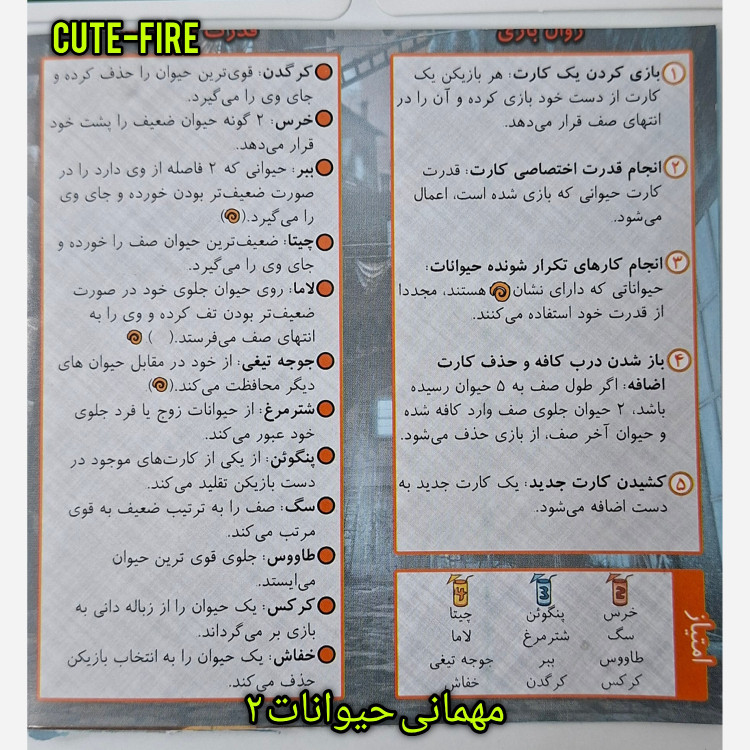 CUTE-FIRE
روال بازی
۱ بازی کردن یک کارت: هر بازیکن یک
کارت از دست خود بازی کرده و آن را در
انتهای صف قرار می‌دهد.
۲ انجام قدرت اختصاصی کارت: قدرت
کارت حیوانی که بازی شده است، اعمال
می‌شود.
۳ انجام کارهای تکرار شونده حیوانات:
حیواناتی که دارای نشان هستند، مجددا
از قدرت خود استفاده می‌کنند.
۴ باز شدن درب کافه و حذف کارت
اضافه: اگر طول صف به ۵ حیوان رسیده
باشد، ۲ حیوان جلوی صف وارد کافه شده
و حیوان آخر صف، از بازی حذف می‌شود.
۵ کشیدن کارت جدید: یک کارت جدید به
دست اضافه می‌شود.
امتیاز
2 3 4
خرس پنگوئن چیتا
سگ شترمرغ لاما
طاووس ببر جوجه تیغی
کرکس کرگدن خفاش
قدرت
کرگدن: قوی‌ترین حیوان را حذف کرده و
جای وی را می‌گیرد.
خرس: ۲ گونه حیوان ضعیف را پشت خود
قرار می‌دهد.
ببر: حیوانی که ۲ فاصله از وی دارد را در
صورت ضعیف‌تر بودن خورده و جای وی
را می‌گیرد.( )
چیتا: ضعیف‌ترین حیوان صف را خورده و
جای وی را می‌گیرد.
لاما: روی حیوان جلوی خود در صورت
ضعیف‌تر بودن تف کرده و وی را به
انتهای صف می‌فرستد.( )
جوجه تیغی: از خود در مقابل حیوان های
دیگر محافظت می‌کند.( )
شترمرغ: از حیوانات زوج یا فرد جلوی
خود عبور می‌کند.
پنگوئن: از یکی از کارت‌های موجود در
دست بازیکن تقلید می‌کند.
سگ: صف را به ترتیب ضعیف به قوی
مرتب می‌کند.
طاووس: جلوی قوی ترین حیوان
می‌ایستد.
کرکس: یک حیوان را از زباله دانی به
بازی بر می‌گرداند.
خفاش: یک حیوان را به انتخاب بازیکن
حذف می‌کند.
مهمانی حیوانات۲